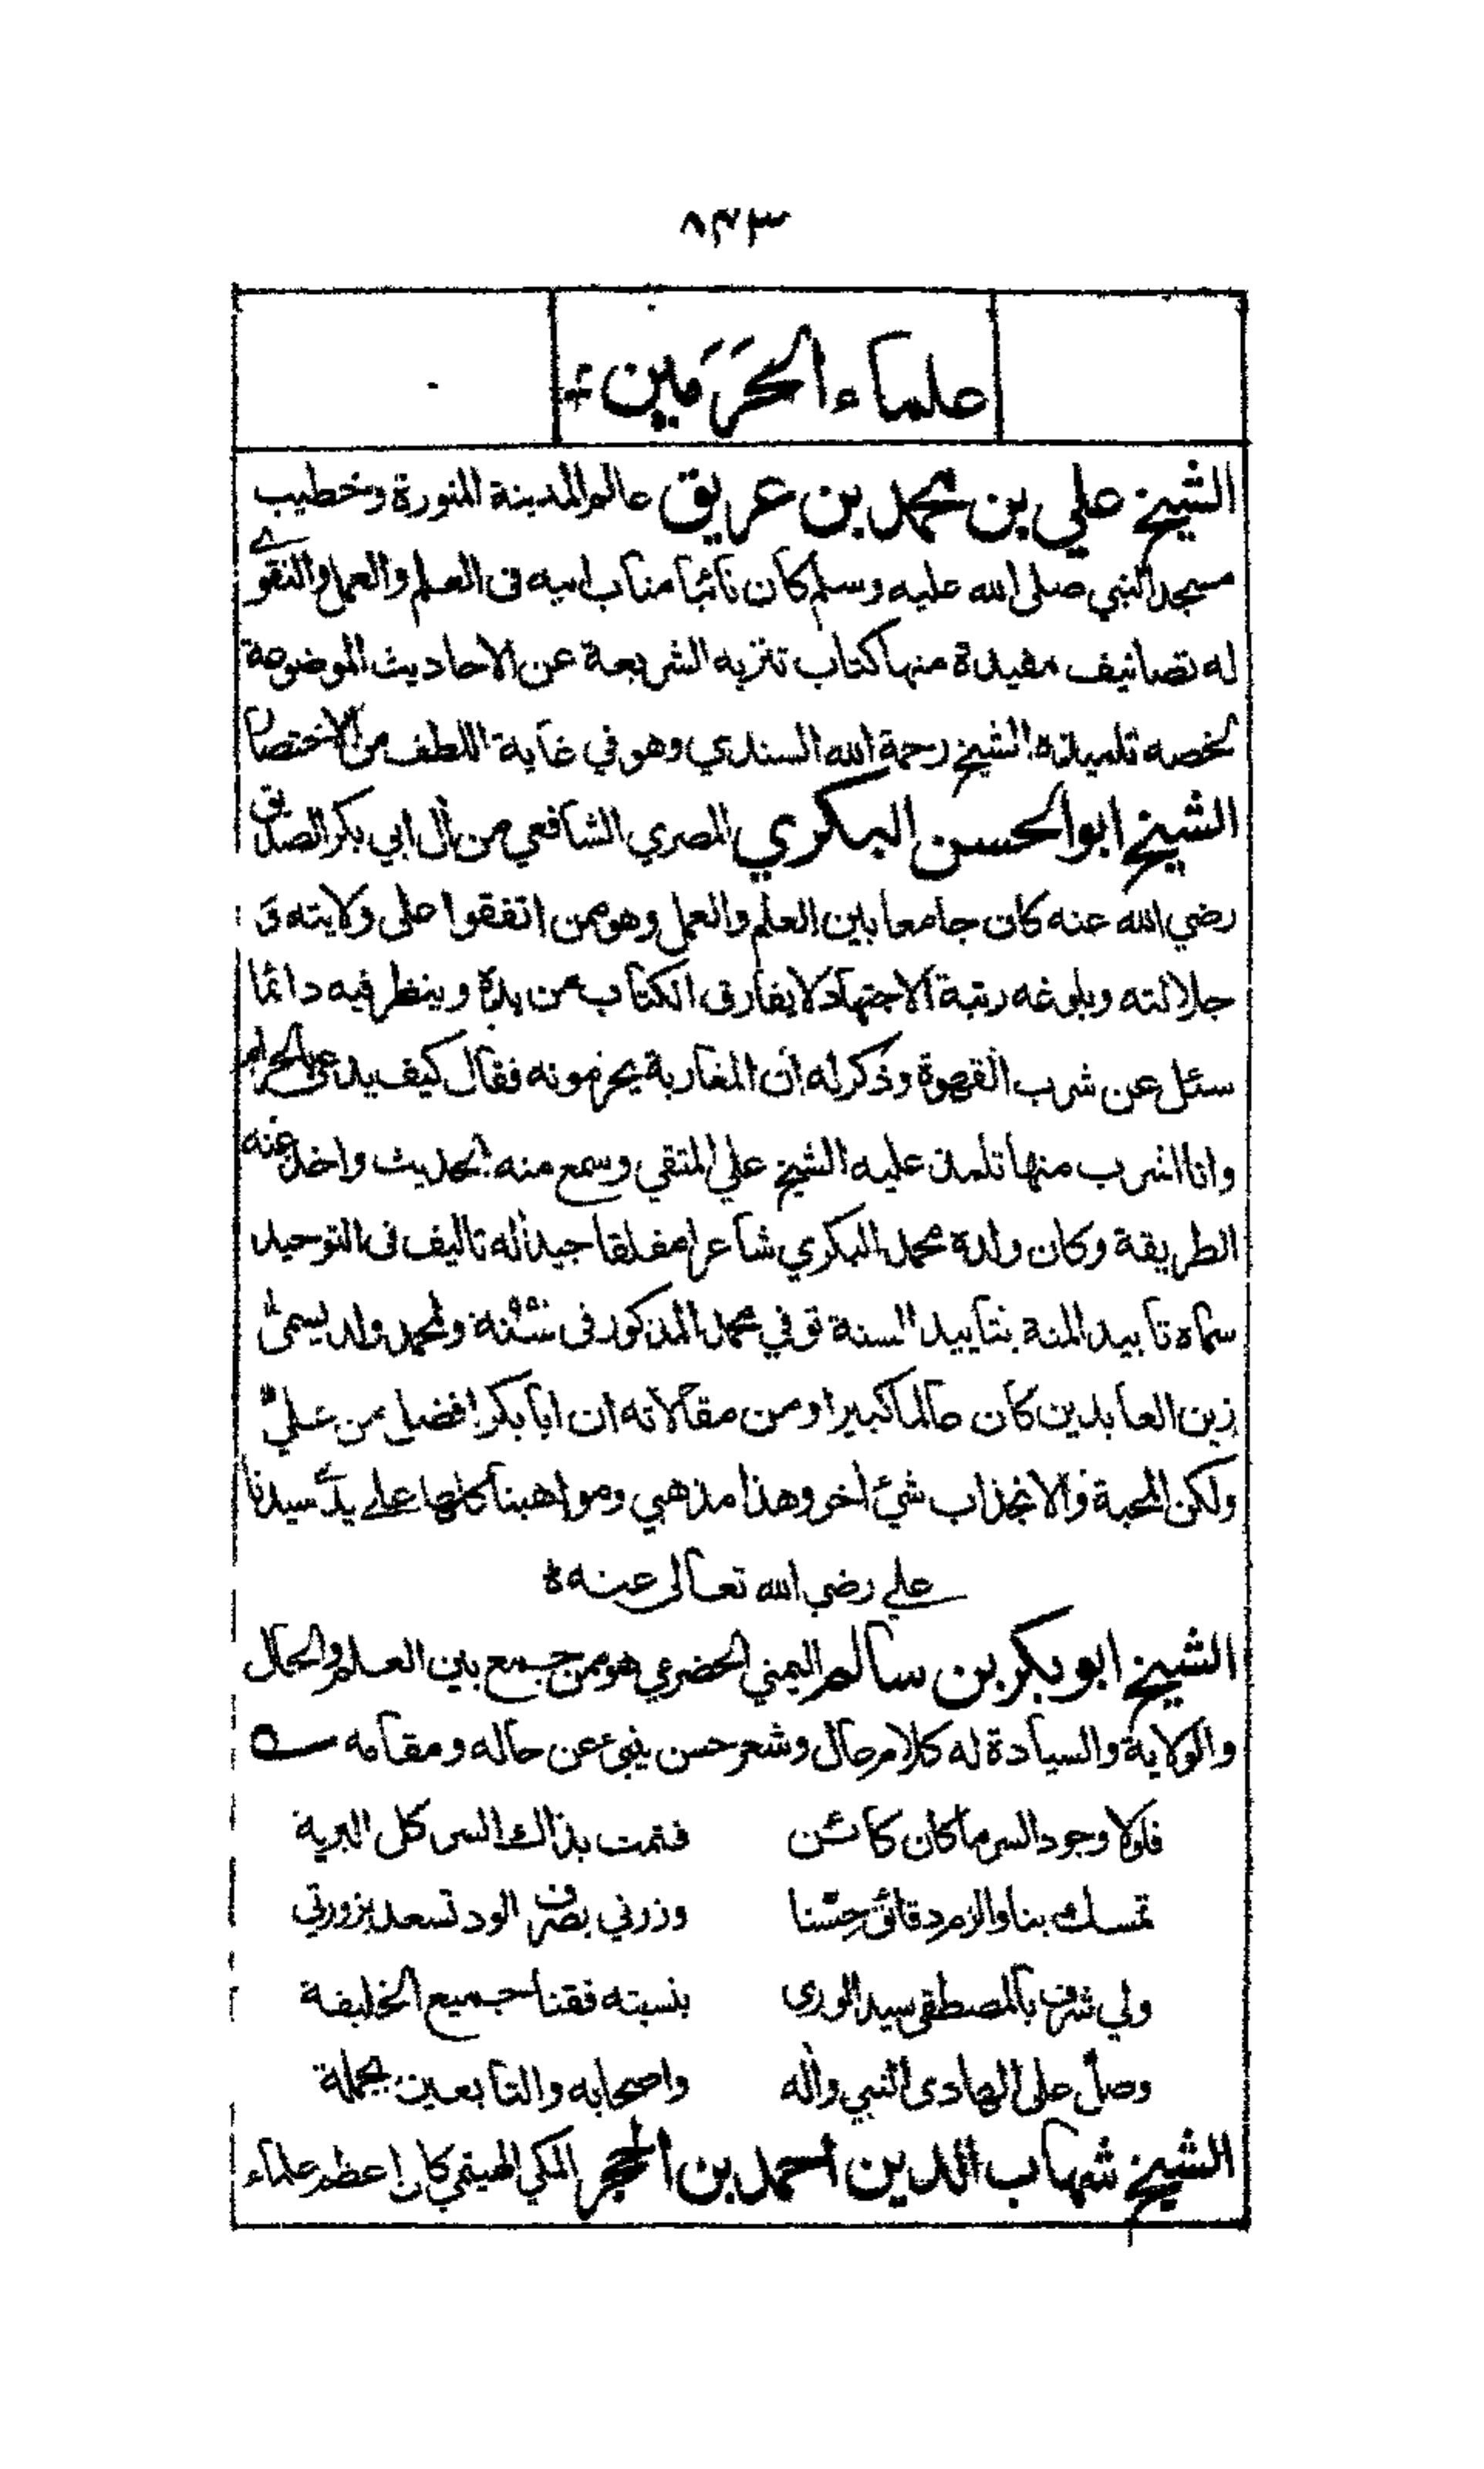 ٨٤٣
علماء الحَرَمَين
الشيخ علي بن محمد بن عريق عالم المدينة المنورة وخطيب
مسجد النبي صلى الله عليه وسلم كان نائبا مناب ابيه فى العلم والعمل والتقوے
له تصانيف مفيدة منها كتاب تنزيه الشريعة عن الاحاديث الموضوعة
لخصه تلميذه الشيخ رحمة الله السندي وهو في غاية اللطف من الاختصار
الشيخ ابو الحسن البكري المصري الشافعي من اٰل ابي بكر الصديق
رضي الله عنه كان جامعا بين العلم والعمل وهو ممن اتفقوا على ولايته وَ
جلالته وبلوغه رتبة الاجتهاد لا يفارق الكتاب من يده وينظر فيه دائما
سئل عن شرب القهوة وذكر له ان المغاربة يحرمونه فقال كيف يدعى الحرام
وانا اشرب منها تلمذ عليه الشيخ علي المتقي وسمع منه الحديث واخذ عنه
الطريقة وكان ولده محمد البكري شاعرا مفلقا جيدا له تاليف فى التوحيد
سماه تابيد المنة بتاييد السنة توفي محمد المذكور فى سنة ولمحمد ولد يسمىٰ
زين العابدين كان عالما كبيرا ومن مقالاته ان ابا بكر افضل من علي
ولكن المحبة والانجذاب شيء اٰخر وهذا مذهبي ومواهبنا كلها علے يد سيدنا
علے رضي الله تعالى عنه ه
الشيخ ابو بكر بن سالم اليمني الحضرمي هو ممن جمع بين العلم والحال
والولاية والسيادة له كلام حال وشعر حسن ينبئ عن حاله ومقامه
فلولا وجود السر ما كان كائن فتمت بذاك السر كل البرية
تمسك بنا والزم دقائق حِسّنا وزرني بصرف الود تسعد بزورتي
ولي شرف بالمصطفى سيد الورى بنسبته فقنا جميع الخليفة
وصلّ على الهادى النبي واٰله واصحابه والتابعين بجملة
الشيخ شهاب الدين احمد بن الحجر المكي الهيتمي كان اعظم علماء